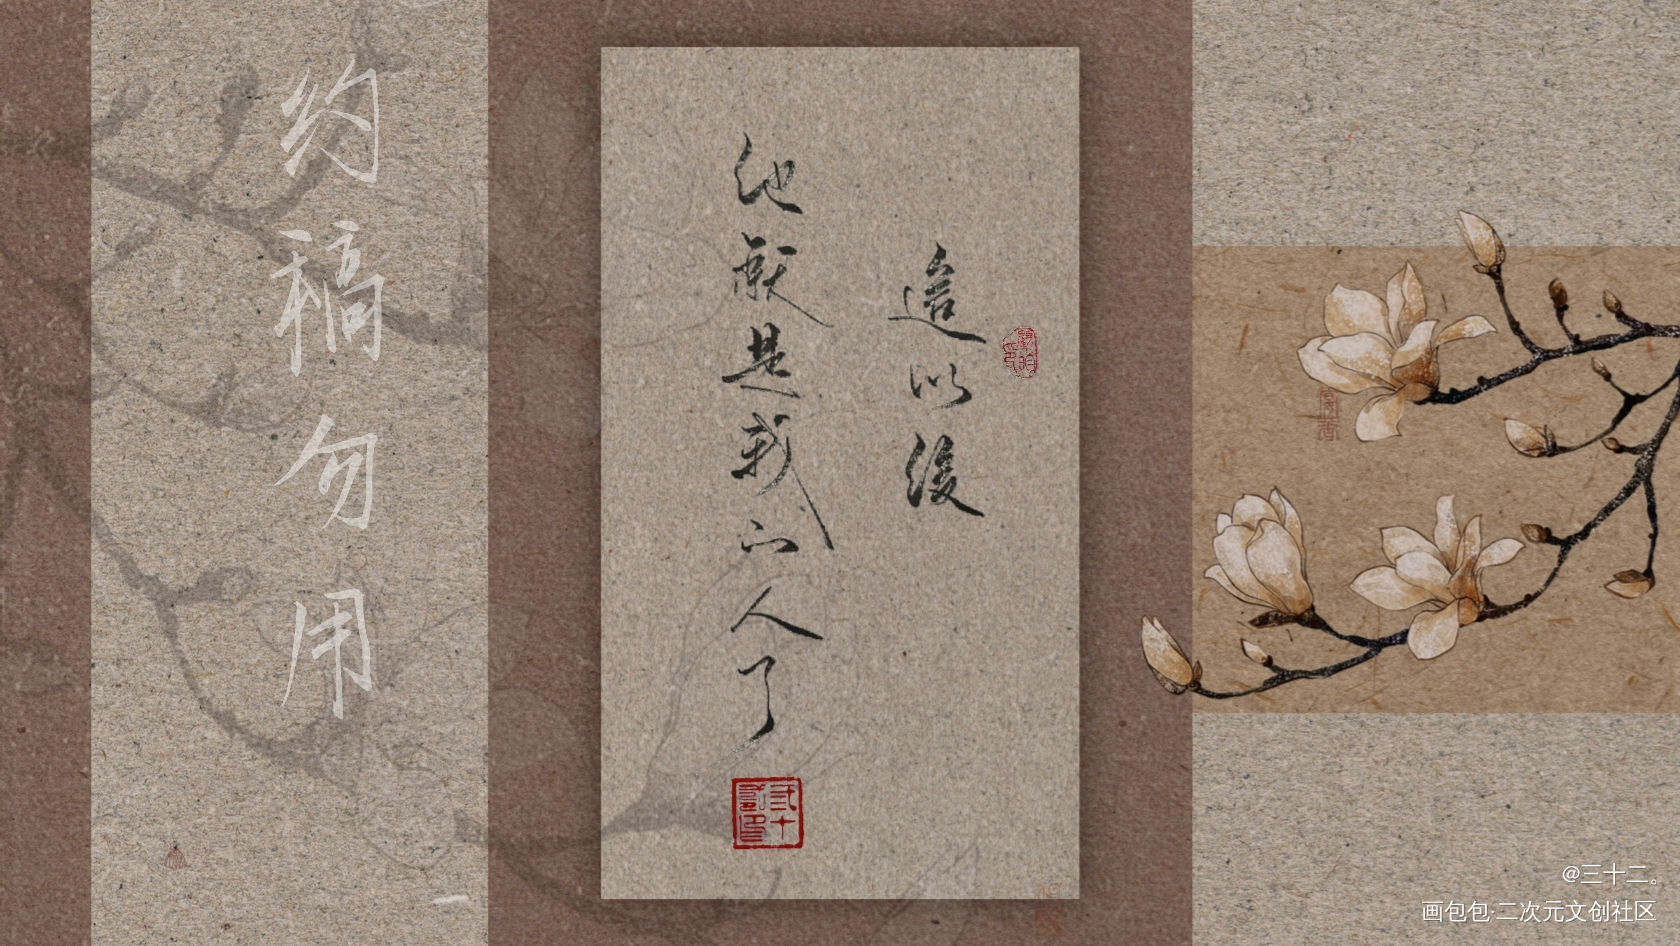 約稿勿用
這以後
他就是我的人了
@三十二。
画包包·二次元文创社区